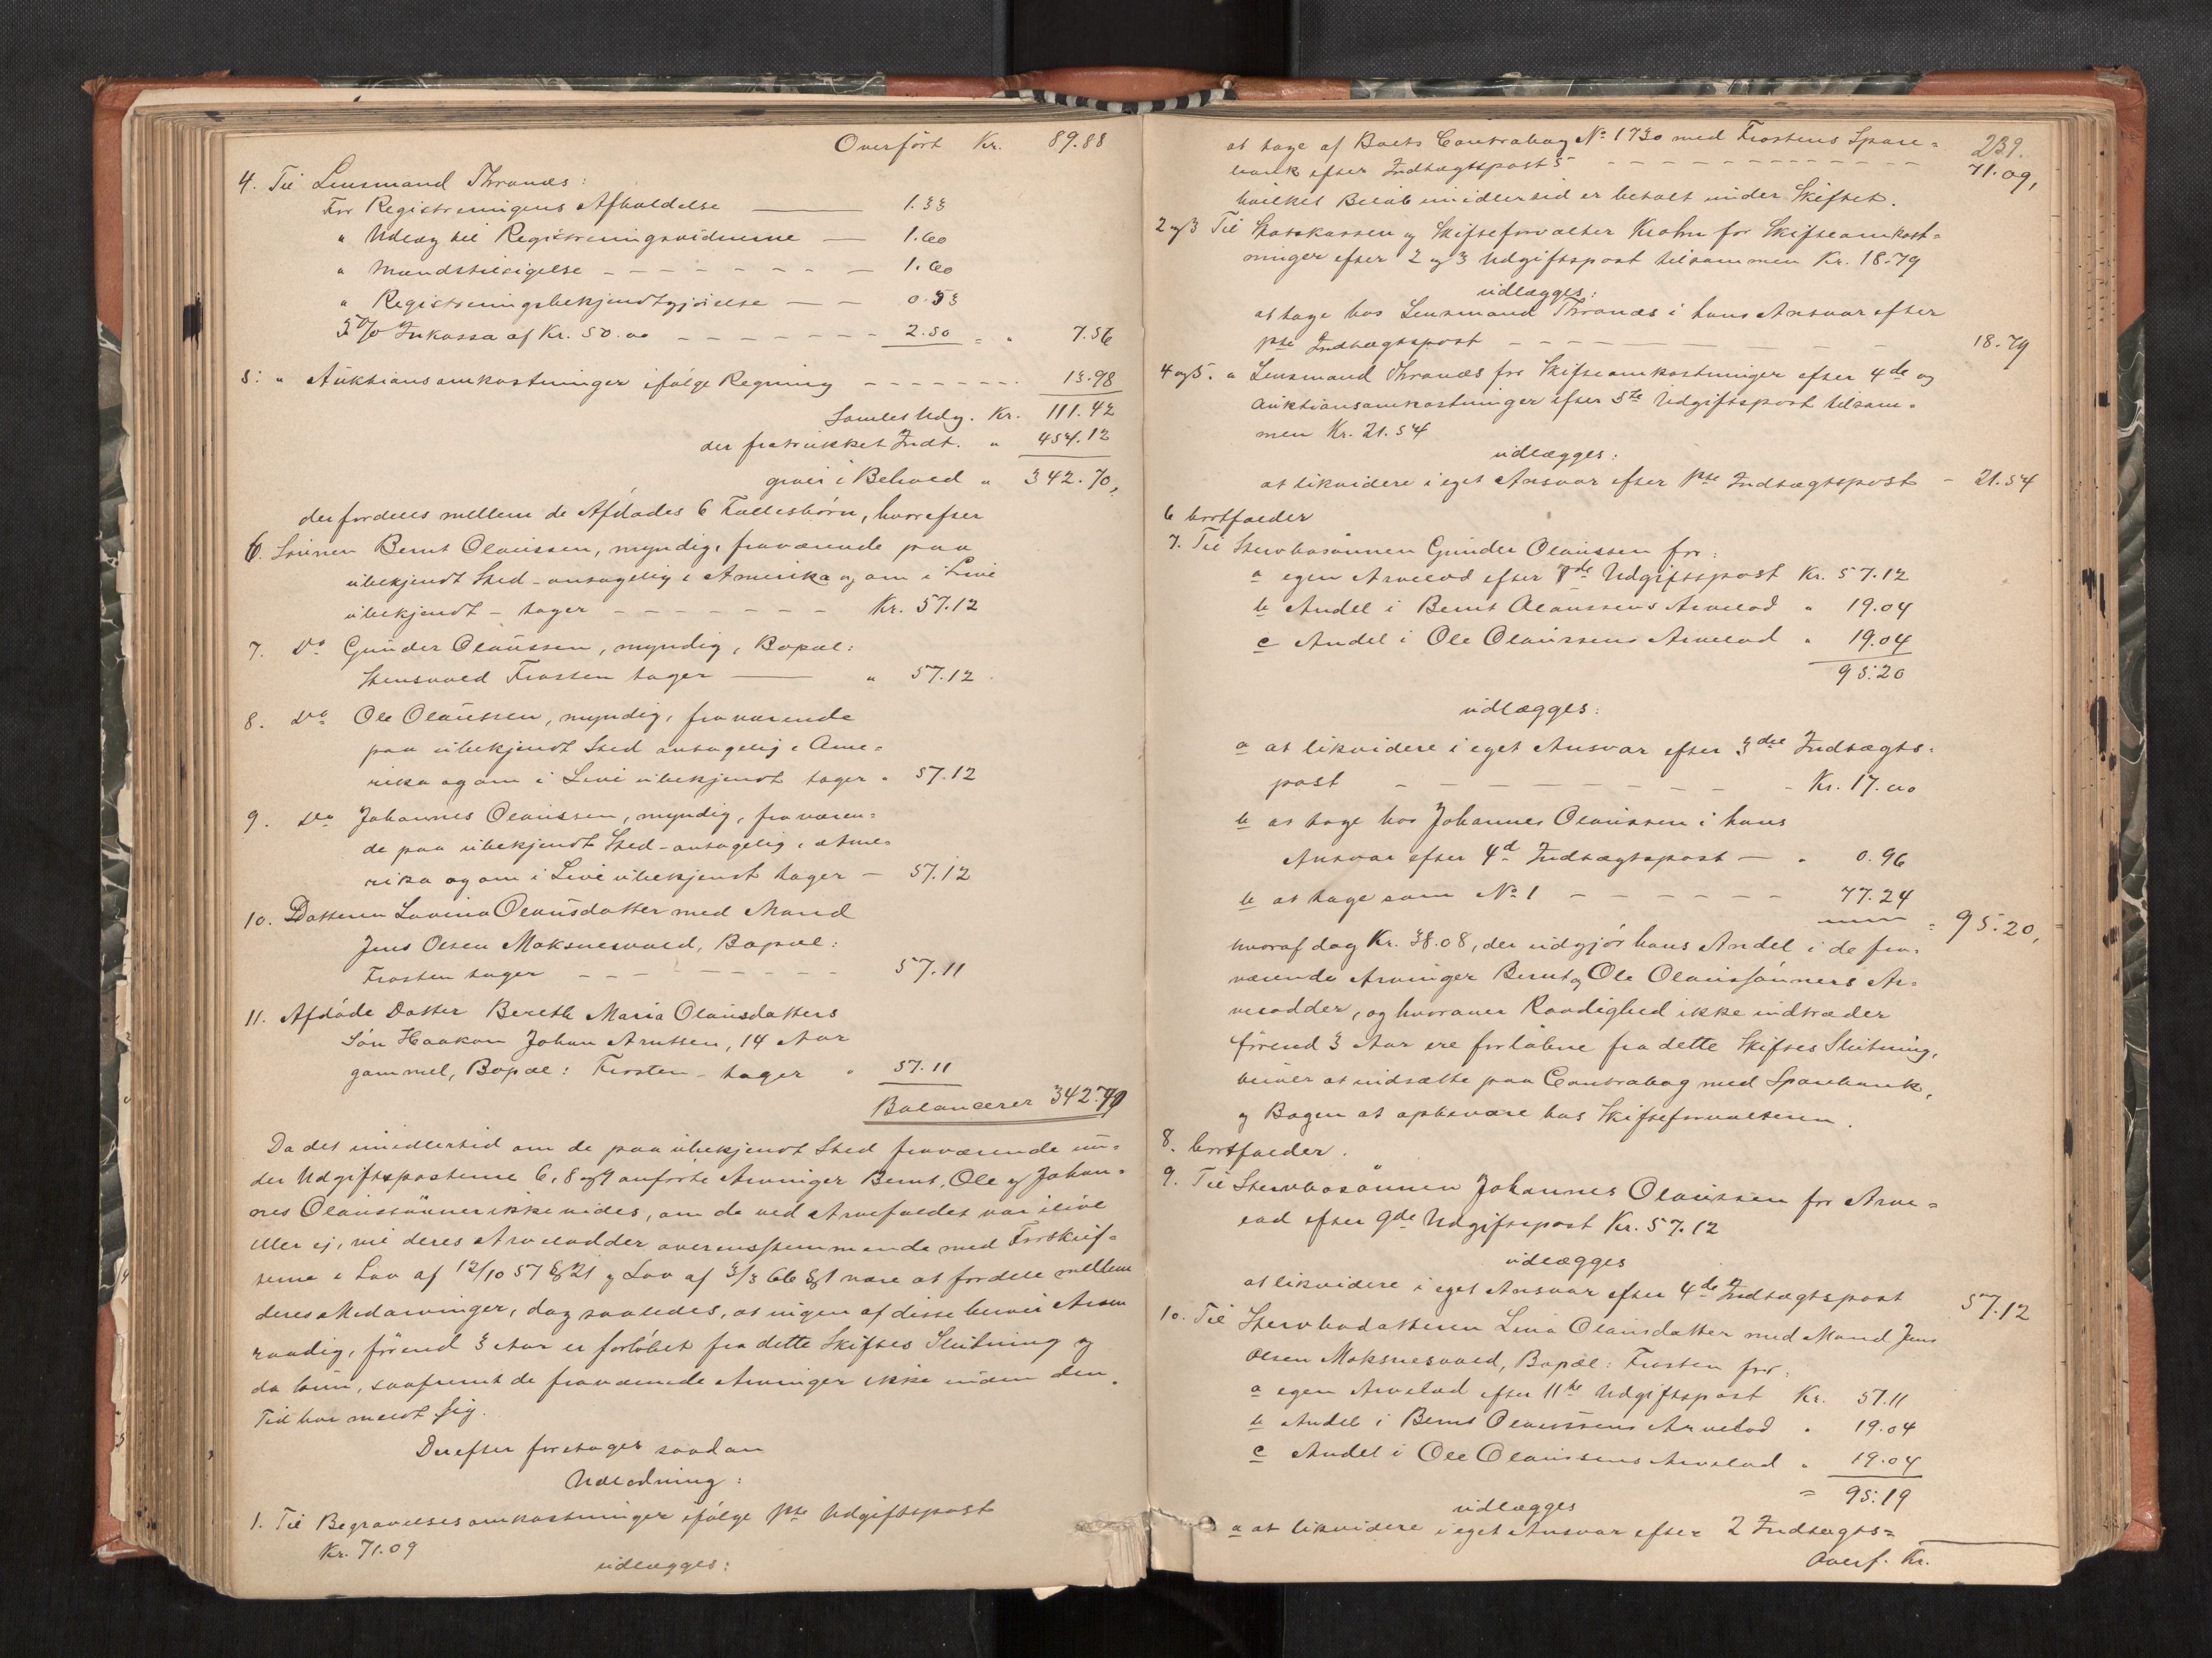 Overført Kr. 89.88
4. Til Lensmand Thranæs:
For Registreringens Afholdelse — 1.33
" Udlæg til Registreringsvidnerne — 1.60
" Mundstilsigelse - - - - - - - 1.60
" Registreringsbekjendtgjørelse — — 0.53
5% Inkassa af Kr. 50.00 - - - - - - 2.50 = " 7.56
5: " Auktionsomkostninger ifølge Regning - - - - - - - 13.98
Samlet Udg. Kr. 111.42
der fratrukket Indt. " 454.12
giver i Behold " 342.70,
der fordeles mellem de Afdødes 6 Fællesbørn, hvorefter
6. Sønnen Bernt Olaussen, myndig, fraværende paa
ubekjendt Sted - antagelig i Amerika og om i Live
ubekjendt - tager - - - - - - - Kr. 57.12
7. Do Gunder Olaussen, myndig, Bopæl:
Stensvold Frosten tager — " 57.12.
8. Do Ole Olaussen, myndig, fraværende
paa ubekjendt Sted antagelig i Ame=
rika og om i Live ubekjendt tager " 57.12
9. Do Johannes Olaussen, myndig, fraværen=
de paa ubekjendt Sted - antagelig i Ame=
rika og om i Live ubekjendt tager — 57.12
10. Datteren Lovina Olausdatter med Mand
Jens Olsen Moksnesvold, Bopæl:
Frosten tager - - - - - - - - 57.11
11. Afdøde Datter Bereth Maria Olausdatters
Søn Haakon Johan Arntsen, 14 Aar
gammel, Bopæl: Frosten - tager " 57.11
Balancerer 342.70
Da det imidlertid om de paa ubekjendt Sted fraværende un=
der Udgiftsposterne 6, 8 og 9 anførte Arvinger Bernt, Ole og Johan=
nes Olaussønner ikke vides, om de ved Arvefaldet var ilive
eller ej, vil deres Arvelodder overensstemmende med Forskrif=
terne i Lov af 12/10 57 § 21 og Lov af 3/3 66 § 1 være at fordele mellem
deres Medarvinger, dog saaledes, at ingen af disse bliver Arven
raadig, førend 3 Aar er forløbet fra dette Skiftes Slutning og
da kun, saafremt de fraværende Arvinger ikke inden den
Tid har meldt sig.
Derefter foretages saadan
Udlodning:
1. Til Begravelsesomkostninger ifølge 1ste Udgiftspost
Kr. 71.09
udlægges:
239.
at tage af Boets Contrabog No 1730 med Frostens Spare=
bank efter Indtægtspost 5 - - - - - - - - - - - - 71.09,
hvilket Beløb imidlertid er betalt under Skiftet.
2 og 3 Til Statskassen og Skifteforvalter Krohn for Skifteomkost=
ninger efter 2 og 3 Udgiftspost tilsammen Kr. 18.79
udlægges:
at tage hos Lensmand Thranæs i hans Ansvar efter
1ste Indtægtspost - - - - - - - - 18.79
4 og 5. " Lensmand Thranæs for Skifteomkostninger efter 4de og
Auktionsomkostninger efter 5te Udgiftspost tilsam=
men Kr. 21.54
udlægges:
at likvidere i eget Ansvar efter 1ste Indtægtspost - 21.54
6 bortfalder
7. Til Stervbosønnen Gunder Olaussen for:
a egen Arvelod efter 7de Udgiftspost Kr. 57.12
b Andel i Bernt Olaussens Arvelod " 19.04
c Andel i Ole Olaussens Arvelod " 19.04
95.20
udlægges:
a at likvidere i eget Ansvar efter 3die Indtægts=
post - - - - - - - - - Kr. 17.00
b at tage hos Johannes Olaussen i hans
Ansvar efter 4d Indtægtspost — " 0.96
b at tage som No 1 - - - - - - 77.24
= 95.20,
hvoraf dog Kr. 38.08, der udgjør hans Andel i de fra=
værende Arvinger Bernt og Ole Olaussønners Ar=
velodder, og hvorover Raadighed ikke indtræder
førend 3 Aar ere forløbne fra dette Skiftes Slutning,
bliver at indsætte paa Contrabog med Sparebank,
og Bogen at opbevare hos Skifteforvalteren.
8. bortfalder.
9. Til Stervbosønnen Johannes Olaussen for Arve=
lod efter 9de Udgiftspost Kr. 57.12
udlægges
at likvidere i eget Ansvar efter 4de Indtægtspost 57.12
10. Til Stervbodatteren Lina Olausdatter med Mand Jens
Olsen Moksnesvold, Bopæl: Frosten for:
a egen Arvelod efter 11te Udgiftspost Kr. 57.11
b Andel i Bernt Olaussens Arvelod " 19.04
c Andel i Ole Olaussens Arvelod " 19.04
= 95.19
udlægges
a at likvidere i eget Ansvar efter 2 Indtægts=
Overf. Kr.